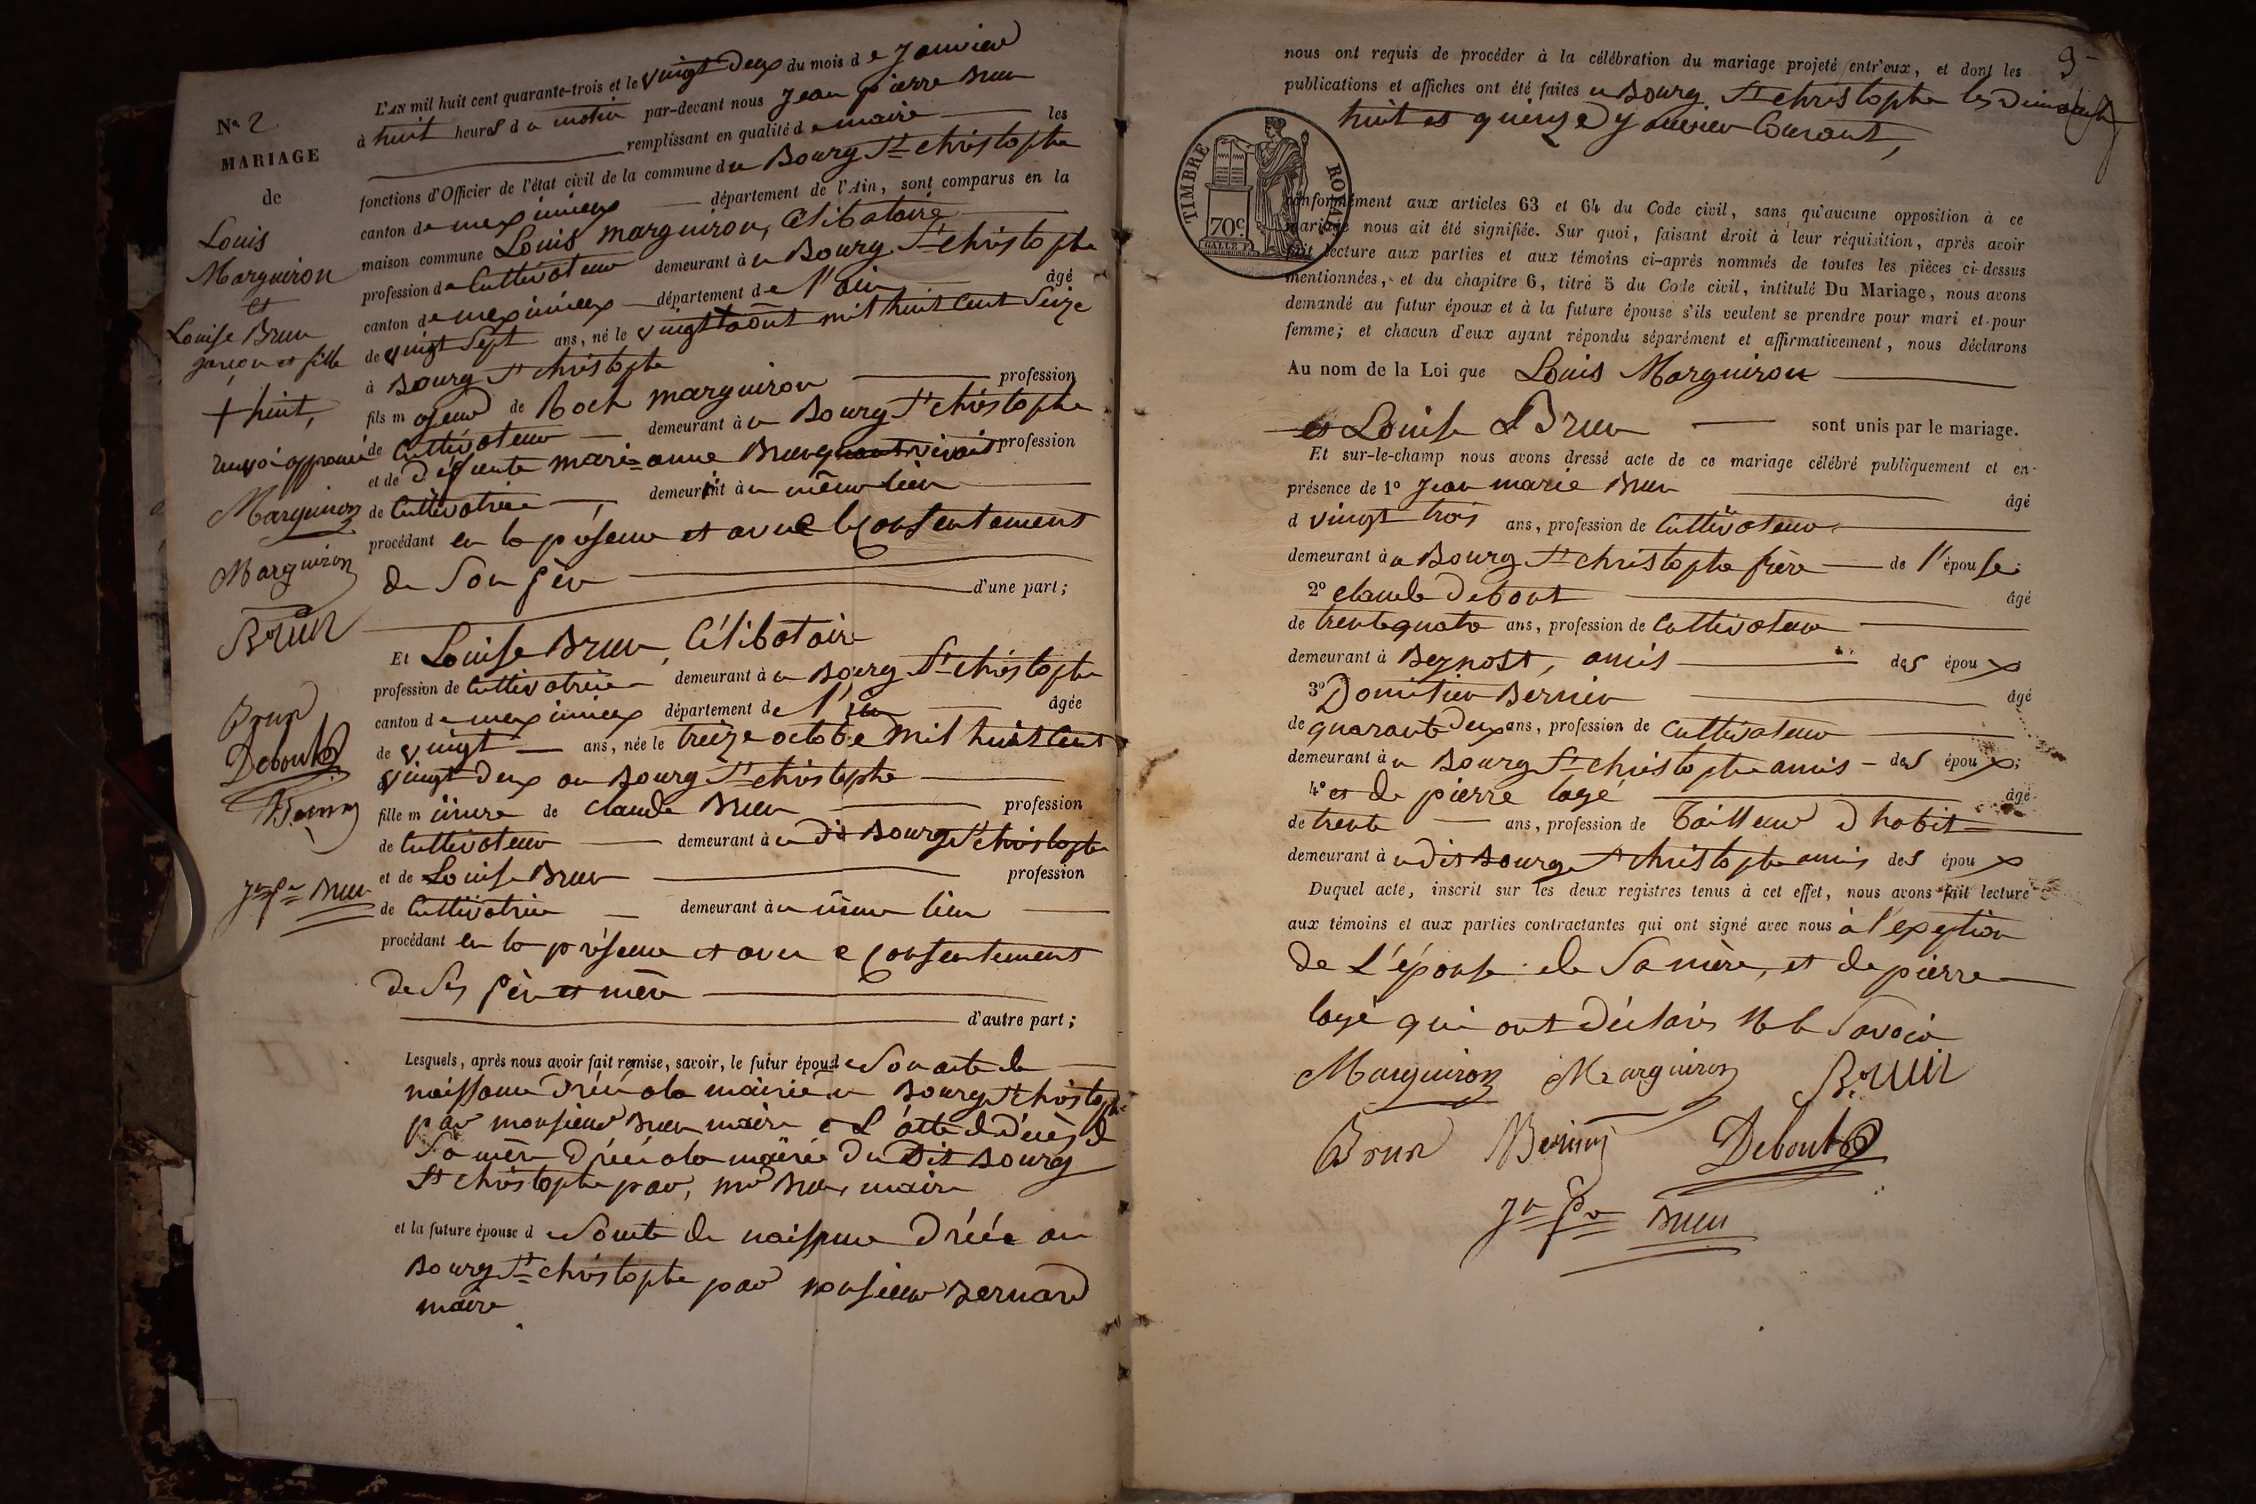 L'AN mil huit cent quarante-trois et le vingt deux du mois de Janvier
à huit heures du matin par-devant nous Jean pierre Brun
remplissant en qualité de maire les
fonctions d'Officier de l'état civil de la commune du Bourg St christophe
canton de meximieux département de l'Ain, sont comparus en la
maison commune Louis Marguiron, Célibataire
profession de Cultivateur demeurant à u Bourg St christophe
canton de meximieux département de l'ain âgé
de vingt Sept ans, né le vingt août mil huit cent Seize
à Bourg St christophe
fils majeur de Roch Marguiron profession
de Cultivateur demeurant à u Bourg St christophe
et de défunte marie anne Brun profession
de Cultivatrice, demeurant à u même lieu
procédant en la présence et avec le Consentement
de Son père
d'une part;
Et Louise Brun, Célibataire
profession de Cultivatrice demeurant à u Bourg St christophe
canton de meximieux département de l'ain âgée
de vingt ans, née le treize octobre mil huit cent
vingt deux au Bourg St christophe
fille mineure de claude Brun profession
de Cultivateur demeurant à u dit Bourg St christophe
et de Louise Brun profession
de Cultivatrice demeurant à u même lieu
procédant en la présence et avec le Consentement
de Ses père et mère
d'autre part;
Lesquels, après nous avoir fait remise, savoir, le futur époux de Son acte de
naissance à la mairie du Bourg St christophe
par monsieur Brun maire L'acte de décès de
Sa mère à la mairie du Dit Bourg
St christophe par, mr Brun maire
et la future épouse de Son acte de naissance au
Bourg St christophe par monsieur Bernard
maire
No 2
MARIAGE
de
Louis
Marguiron
et
Louise Brun
garçon et fille
+ huit,
renvoi approuvé
Marguiron
Marguiron
Brun
Brun
Debout
Jn Pre Brun
9
nous ont requis de procéder à la célébration du mariage projeté entr'eux, et dont les
publications et affiches ont été faites u Bourg St christophe les Dimanches
huit et quinze Janvier Courant,
TIMBRE ROYAL
70c.
conformément aux articles 63 et 64 du Code civil, sans qu'aucune opposition à ce
mariage nous ait été signifiée. Sur quoi, faisant droit à leur réquisition, après avoir
fait lecture aux parties et aux témoins ci-après nommés de toutes les pièces ci-dessus
mentionnées, et du chapitre 6, titre 5 du Code civil, intitulé Du Mariage, nous avons
demandé au futur époux et à la future épouse s'ils veulent se prendre pour mari et pour
femme; et chacun d'eux ayant répondu séparément et affirmativement, nous déclarons
Au nom de la Loi que Louis Marguiron
et Louise Brun sont unis par le mariage.
Et sur-le-champ nous avons dressé acte de ce mariage célébré publiquement et en
présence de 1o Jean marie Brun âgé
d vingt trois ans, profession de Cultivateur
demeurant à u Bourg St christophe frère de l'épouse
2o claude Debout âgé
de trente quatre ans, profession de Cultivateur
demeurant à Beynost, amis des époux
3o Domitien Bernin âgé
de quarante deux ans, profession de Cultivateur
demeurant à u Bourg St christophe amis des époux;
4o et de pierre layé âgé
de trente ans, profession de Tailleur d'habit
demeurant à u dit Bourg St christophe amis des époux
Duquel acte, inscrit sur les deux registres tenus à cet effet, nous avons fait lecture
aux témoins et aux parties contractantes qui ont signé avec nous à l'exeption
de L'épouse de Sa mère, et de pierre
layé qui ont déclarés Ne le Savoir
Marguiron Marguiron Brun
Brun Bernin Debout
Jn Pre Brun